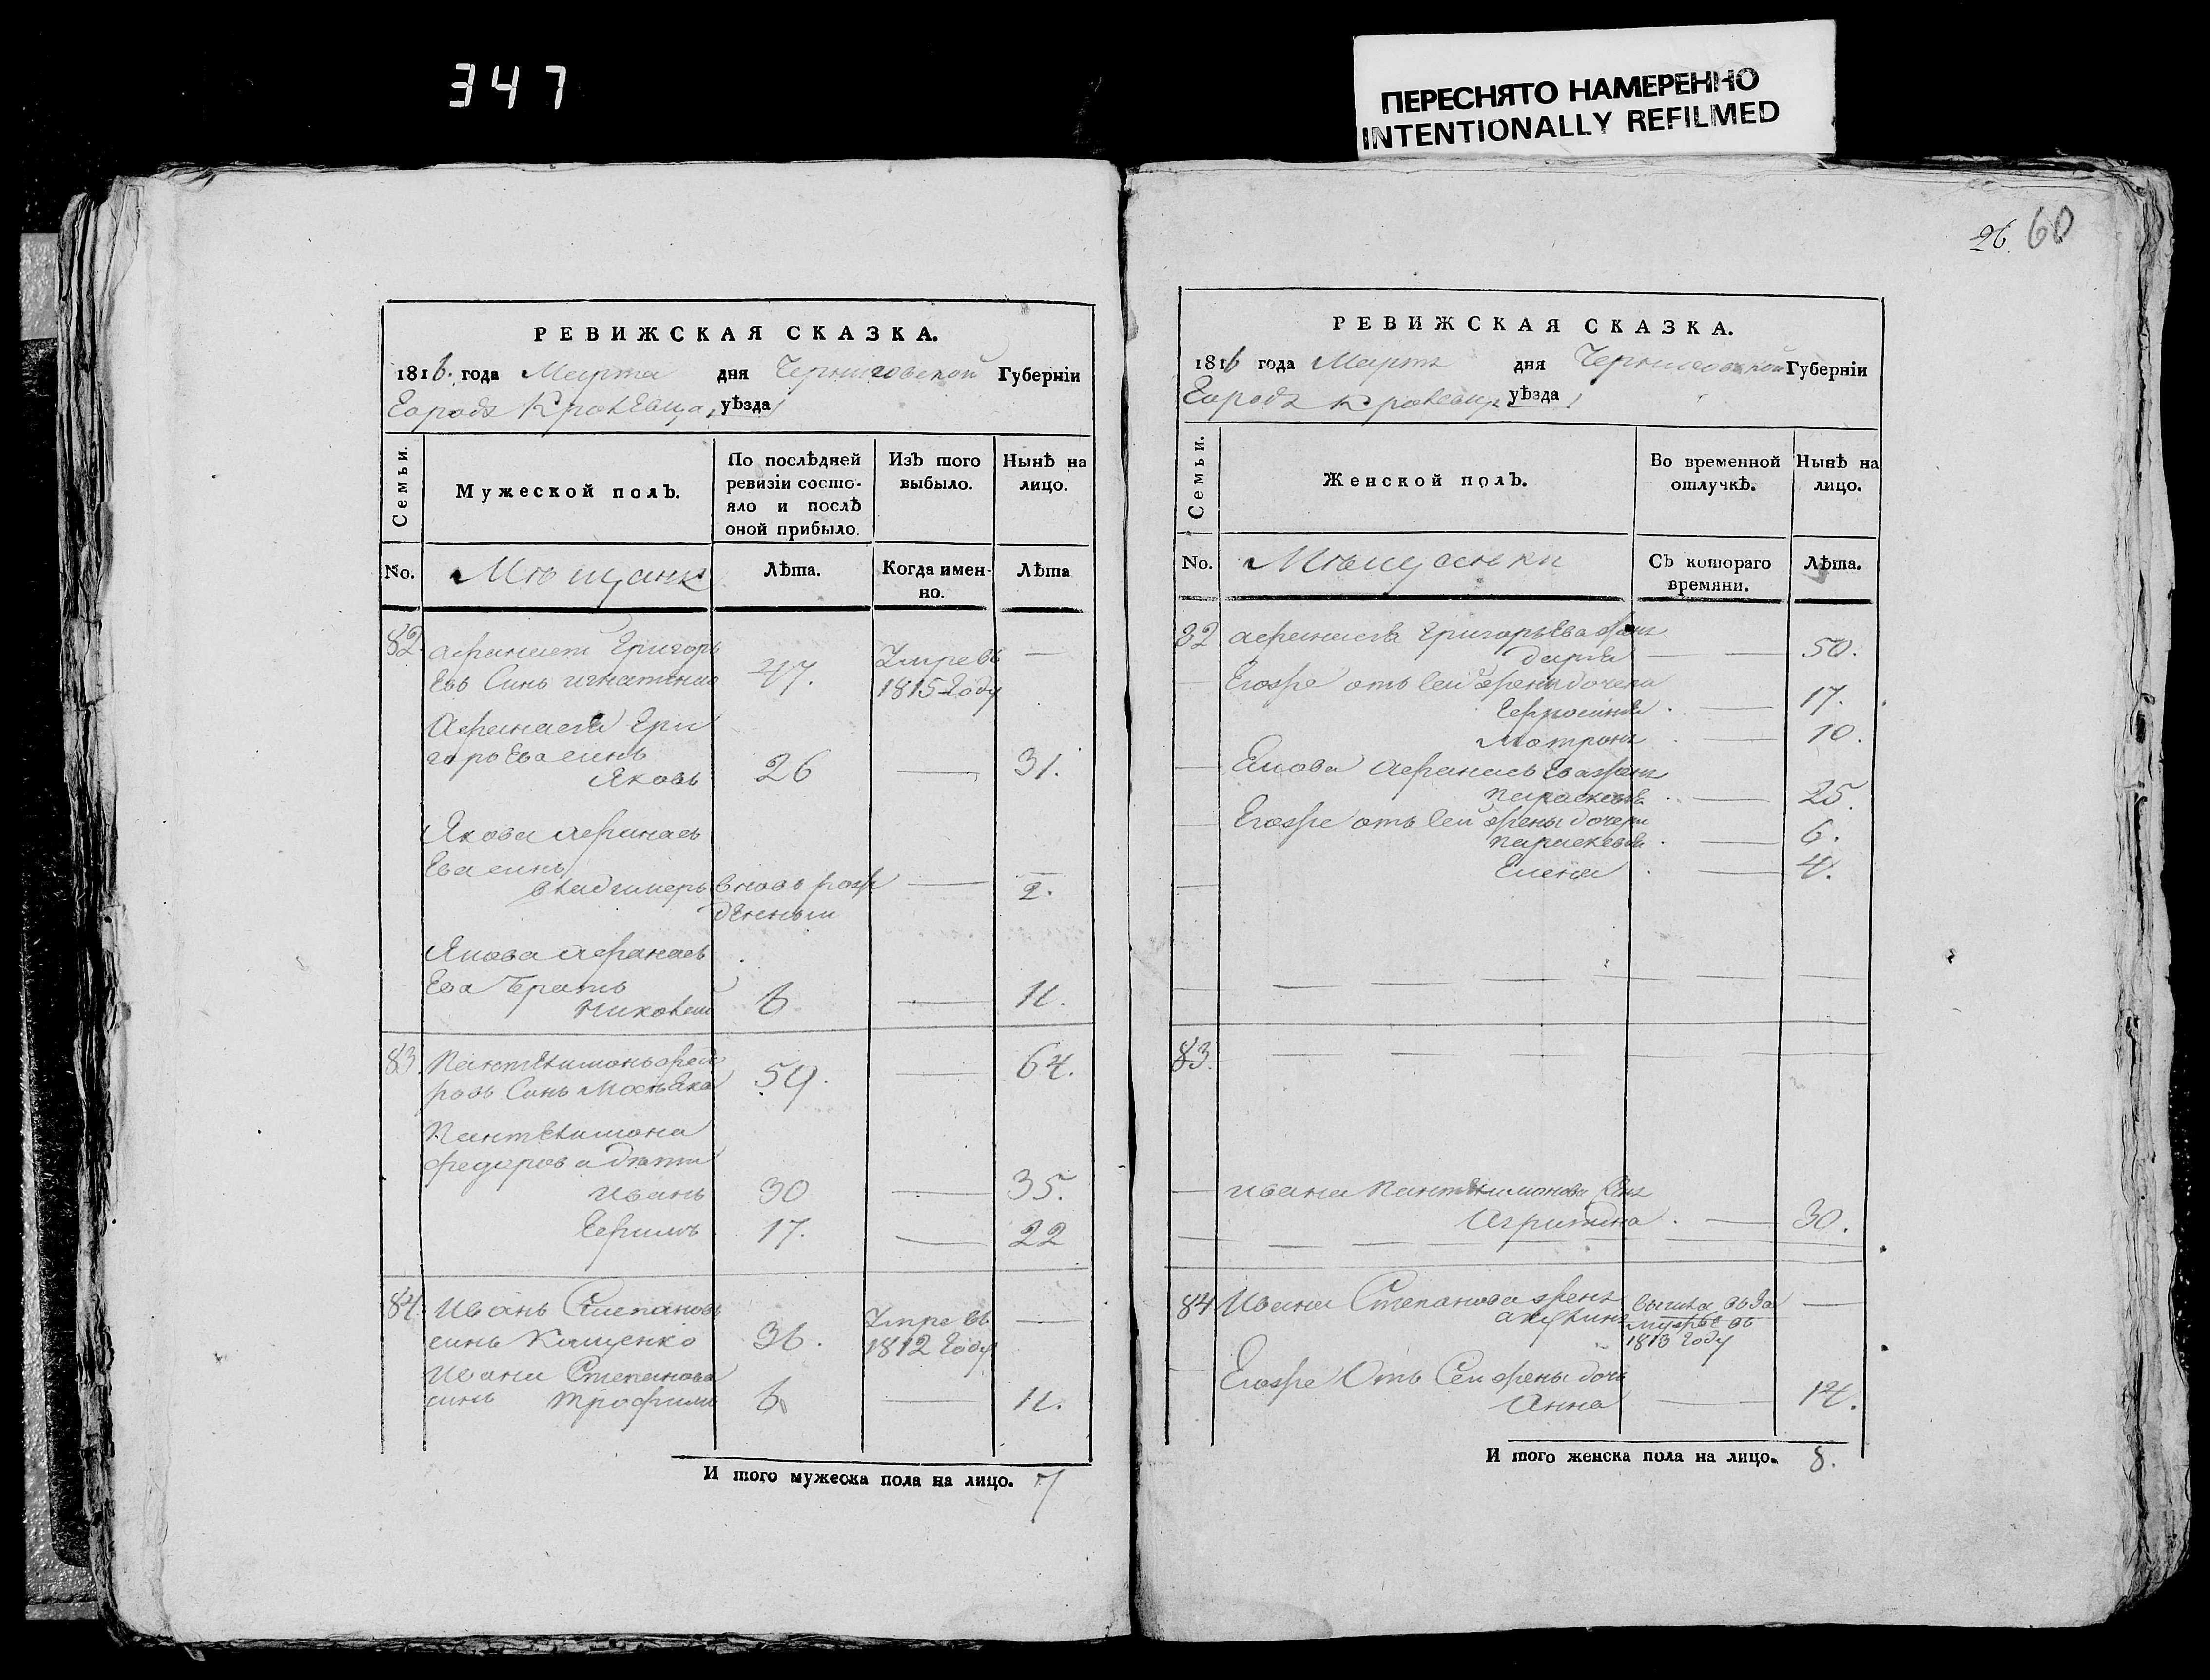 347
ПЕРЕСНЯТО НАМЕРЕННО
INTENTIONALLY REFILMED
26. 60
РЕВИЖСКАЯ СКАЗКА.
1816. года Марта дня Черниговской Губерніи
Города Кролевца, уѣзда
Семьи.
Мужеской полъ.
По послѣдней
ревизіи состо-
яло и послѣ
оной прибыло.
Изъ того
выбыло.
Нынѣ на
лицо.
No.
Мѣщанѣ
Лѣта.
Когда имен-
но.
Лѣта
82. Афанасей Григорь
евъ Синъ Игнатенко 47. Умре въ —
1815 году
Афанасея Гри
горьева синъ
Яковъ 26 — 31.
Якова Афанась
ева синъ
владимеръ вновь рож — 2.
денный
Якова Афанась
ева Братъ
Николай 6 — 11.
83. Пантелимонъ Фед
ровъ Синъ 59. — 64.
Пантелимона
Федорова дѣти
Иванъ 30 — 35.
Ефимъ 17. — 22
84. Иванъ Степановъ
синъ Кащенко 36. Умре въ —
1812 году
Ивана Степанова
синъ Трофимъ 6 — 11.
И того мужеска пола на лицо. 7
РЕВИЖСКАЯ СКАЗКА.
1816 года Мартъ дня Черниговской Губерніи
Города Кролевца уѣзда
Семьи.
Женской полъ.
Во временной
отлучкѣ.
Нынѣ на
лицо.
No.
Мѣщанки
Съ котораго
времяни.
Лѣта.
82 Афанасея Григорьева жена
Дарья — — 50.
Егожъ отъ сей жены дочери
Ефросиния . — 17.
Мотрона . — 10.
Якова Афанасьева жена
Параскевия . — 25.
Егожъ отъ сей жены дочери
Параскевия . — 6.
Елена . — 4.
83.
Ивана Пантелимонова жена
Агрипина . — 30.
84 Ивана Степанова жена
Акулина вышла въ За —
мужье въ
1813 году
Егожъ Отъ Сей жены дочь
Анна — 14.
И того женска пола на лицо. 8.